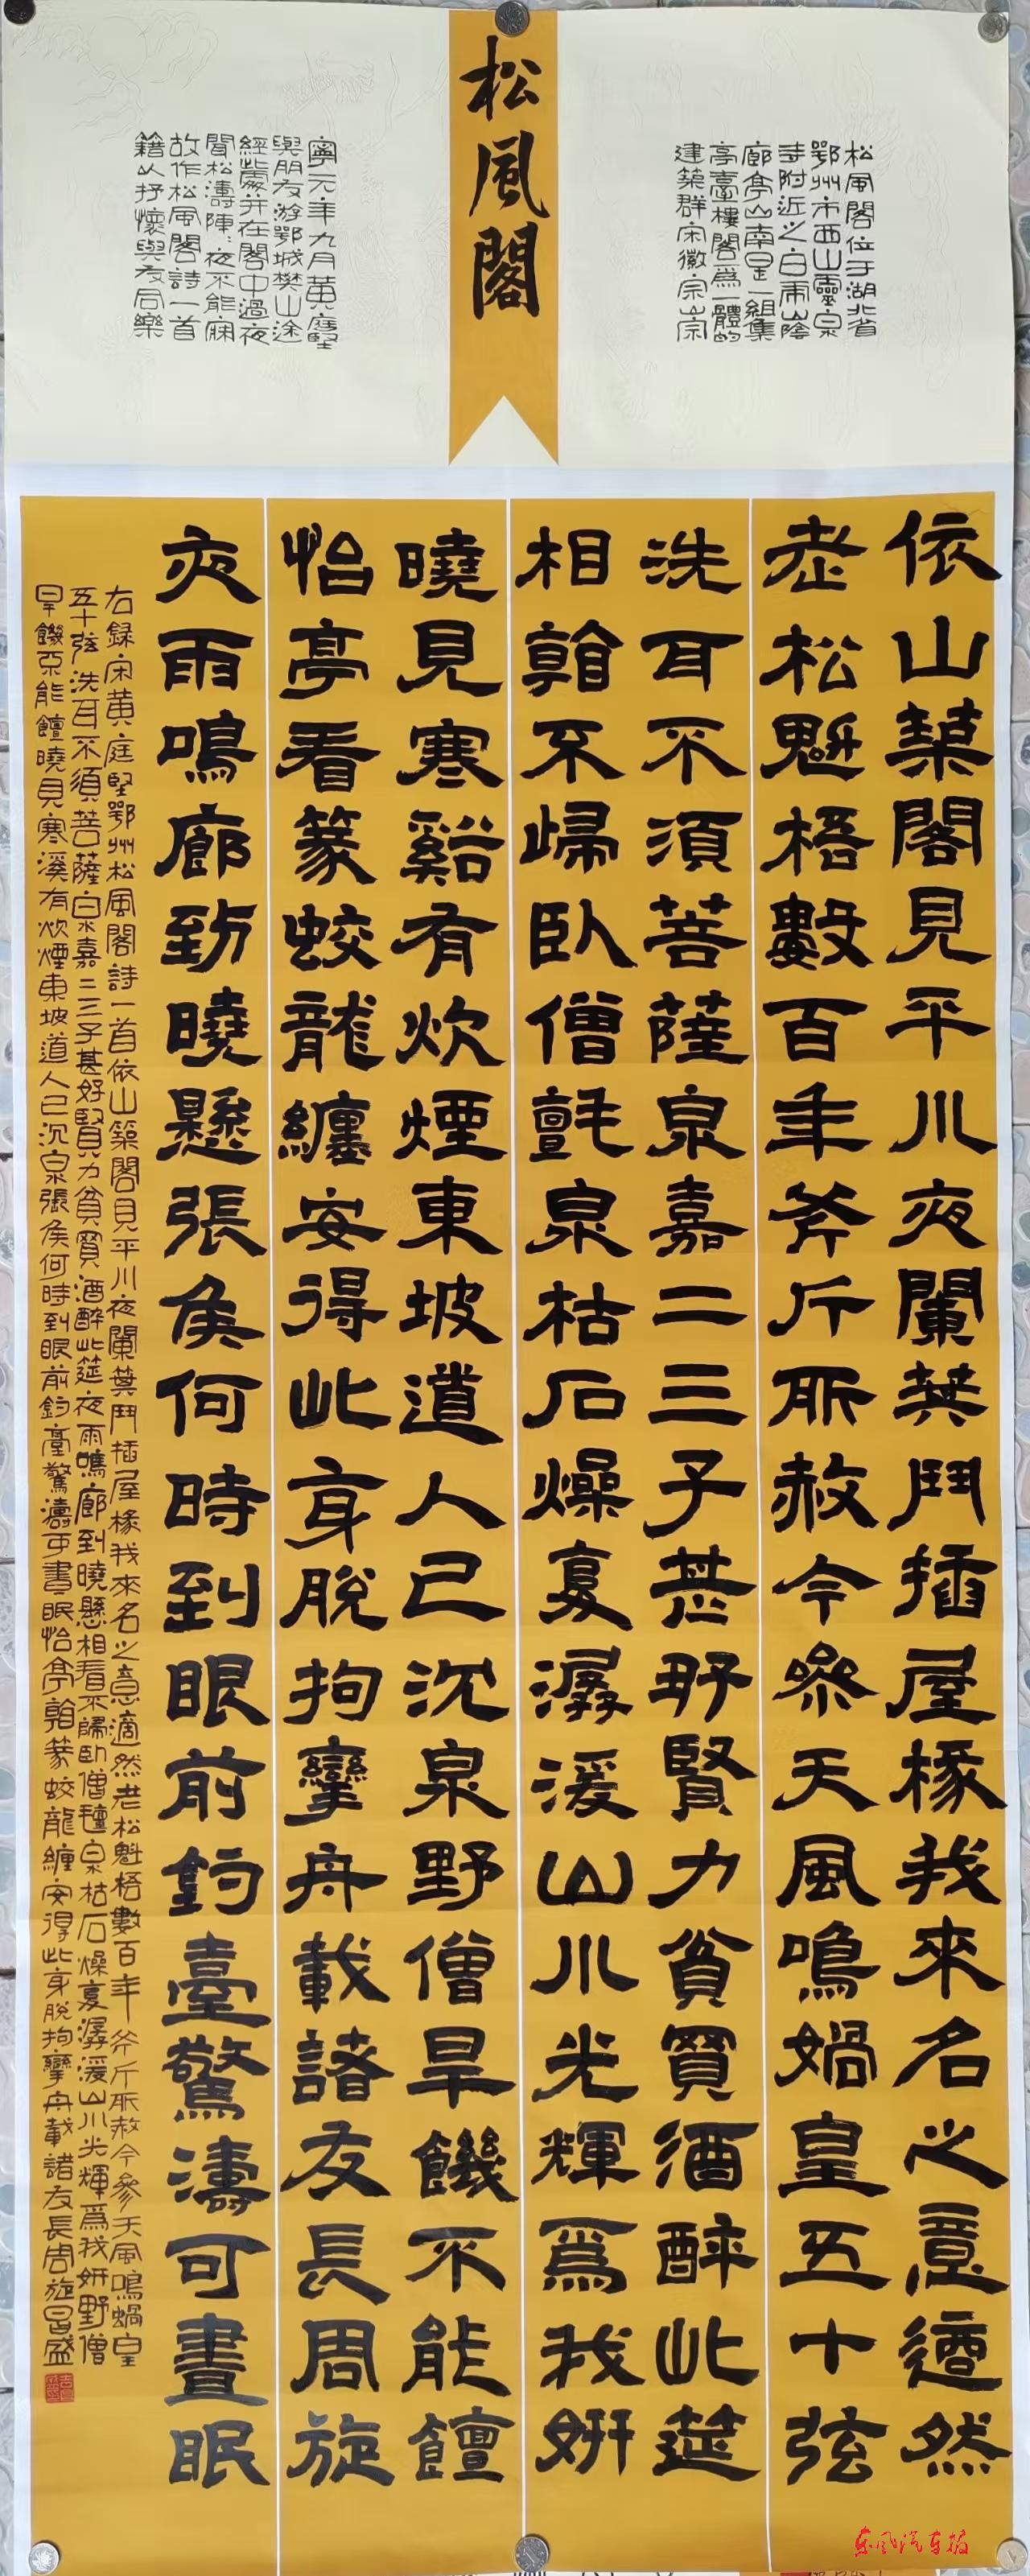 松風閣
松風閣位于湖北省
鄂州市西山靈泉
寺附近之白雨山陰
廊亭山南是一組集
亭臺樓閣爲一體的
建築群宋徽宗崇
寧元年九月黃庭堅
與朋友游鄂城樊山途
經此處并在閣中過夜
聞松濤陣陣夜不能寐
故作松風閣詩一首
籍以抒懷與友同樂
依山築閣見平川夜闌箕鬥插屋椽我來名之意適然
老松魁梧數百年斧斤所赦今參天風鳴媧皇五十弦
洗耳不須菩薩泉嘉二三子甚好賢力貧買酒醉此筵
相看不歸臥僧氈泉枯石燥復潺湲山川光輝爲我妍
曉見寒谿有炊煙東坡道人已沉泉野僧旱饑不能饘
怡亭看篆蛟龍纏安得此身脫拘攣舟載諸友長周旋
夜雨鳴廊到曉懸張侯何時到眼前釣臺驚濤可晝眠
右録宋黃庭堅鄂州松風閣詩一首依山築閣見平川夜闌箕鬥插屋椽我來名之意適然老松魁梧數百年斧斤所赦今參天風鳴媧皇
五十弦洗耳不須菩薩泉嘉二三子甚好賢力貧買酒醉此筵夜雨鳴廊到曉懸相看不歸臥僧氈泉枯石燥復潺湲山川光輝爲我妍野僧
旱饑不能饘曉見寒溪有炊煙東坡道人已沉泉張侯何時到眼前釣臺驚濤可晝眠怡亭看篆蛟龍纏安得此身脫拘攣舟載諸友長周旋昌盛
东风汽车报